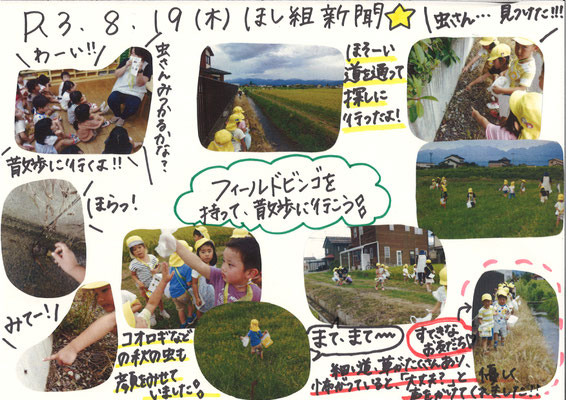 R3.8.19(木)ほし組新聞☆
わーい!!
虫さんみつかるかな?
散歩に行くよ!!
ほそーい
道を通って
探しに
行ったよ!
虫さん… 見つけた!!!
フィールドビンゴを
持って、散歩に行こう!
ほらっ!
みてー!
コオロギなど
の秋の虫も
顔をみせて
いました!
まて、まて〜
すてきな
お友だち
細い道、草がたくさんあり、
怖がっていると、「大丈夫?」と、
優しく
声をかけてくれました!!